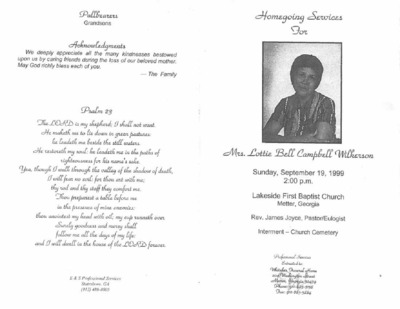 Pallbearers
Grandsons
Acknowledgments
We deeply appreciate all the many kindnesses bestowed
upon us by caring friends during the loss of our beloved mother.
May God richly bless each of you.
— The Family
Psalm 23
The LORD is my shepherd; I shall not want.
He maketh me to lie down in green pastures:
he leadeth me beside the still waters.
He restoreth my soul: he leadeth me in the paths of
righteousness for his name's sake.
Yea, though I walk through the valley of the shadow of death,
I will fear no evil: for thou art with me;
thy rod and thy staff they comfort me.
Thou preparest a table before me
in the presence of mine enemies:
thou anointest my head with oil; my cup runneth over.
Surely goodness and mercy shall
follow me all the days of my life:
and I will dwell in the house of the LORD forever.
Professional Services
Statesboro, GA
Homegoing Services
For
Mrs. Lottie Bell Campbell Wilkerson
Sunday, September 19, 1999
2:00 p.m.
Lakeside First Baptist Church
Metter, Georgia
Rev. James Joyce, Pastor/Eulogist
Interment – Church Cemetery
Professional Services
Entrusted to
Funeral Home
Metter, Georgia